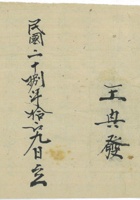 王典發
民國二十捌年拾月九日立